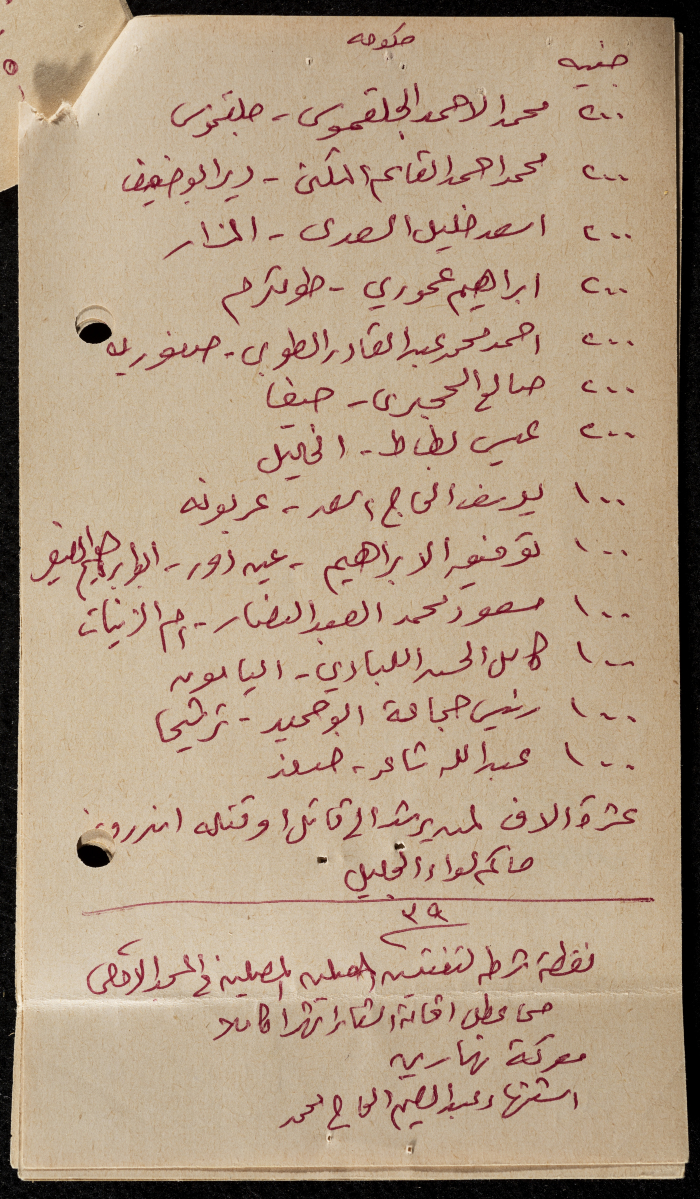 حكومه
جنيه
٢٠٠ محمد الاحمد الجلقموسي - جلقموس
٢٠٠ محمد احمد القاسم - دير ابو ضعيف
٢٠٠ اسعد خليل السعدي - المزار
٢٠٠ ابراهيم عموري - طولكرم
٢٠٠ احمد محمد عبد القادر الطوبى - صفوريه
٢٠٠ صالح الحجيري - حيفا
٢٠٠ عيسى بطاط - الخليل
١٠٠ يوسف الحاج اسعد - عربونه
١٠٠ توفيق الابراهيم - عين دور - ابو ابراهيم الصغير
١٠٠ مسعود محمد العبد - ام الزينات
١٠٠ كامل الحسن اللبادي - اليامون
١٠٠ رئيس جماعة ابو حميد - ترشيحا
١٠٠ عبد الله شاعر - صفد
عشرة الاف لمن يرشد الى قاتل او قتله اندروز
حاكم لواء الجليل
٣٩
نقطة شرطه لتفتيش المصلين في المسجد الاقصى
مما عطل اقامة الشعائر شهرا كاملا
معركة نهاريه
استشهاد عبد الرحيم الحاج محمد